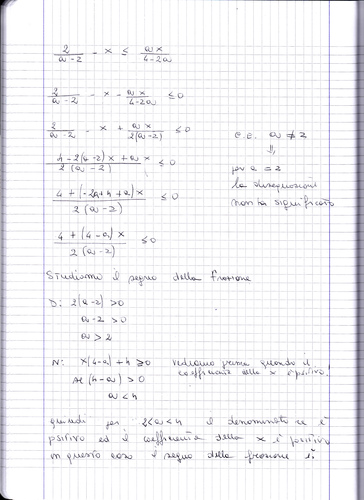 2/(a-2) - x ≤ ax/(4-2a)
2/(a-2) - x - ax/(4-2a) ≤ 0
2/(a-2) - x + ax/(2(a-2)) ≤ 0 c.e. a ≠ 2
⇓
(4-2(a-2)x + ax)/(2(a-2)) ≤ 0 per a = 2
la disequazione
(4+(-2a+4+a)x)/(2(a-2)) ≤ 0 non ha significato
(4+(4-a)x)/(2(a-2)) ≤ 0
Studiamo il segno della frazione
D: 2(a-2) > 0
a-2 > 0
a > 2
N: x(4-a)+4 ≥ 0 vediamo prima quando il
coefficiente della x è positivo!
(4-a) > 0
a < 4
quindi per 2<a<4 il denominatore è
positivo ed il coefficiente della x è positivo
in questo caso il segno della frazione è